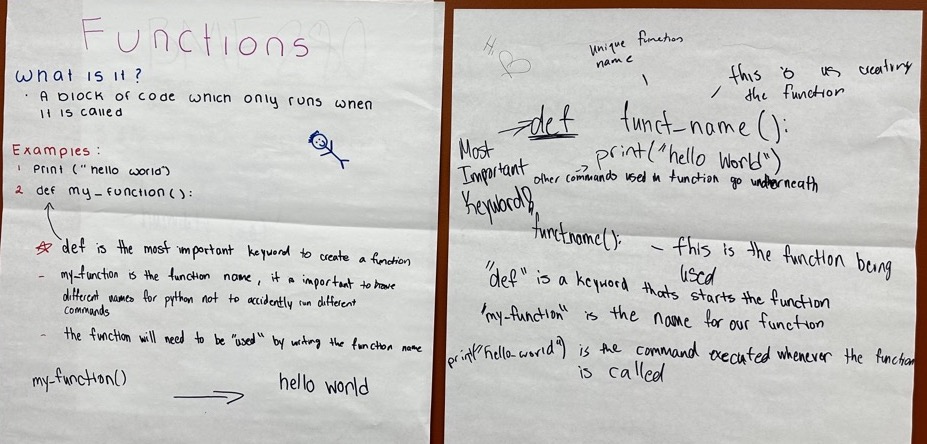 Functions
What is it?
· A block of code which only runs when
it is called
Examples:
1 print ("hello world")
2 def my_function():
def is the most important keyword to create a function
- my-function is the function name, it is important to have
different names for python not to accidently run different
commands
- the function will need to be "used" by writing the function name
my-function() → hello world
Hi
unique function
name
this is us creating
the function
→ def funct_name():
Most
Important
Keyword
→ print("hello World")
other commands used in function go underneath
functname(): - this is the function being
used
"def" is a keyword thats starts the function
"my-function" is the name for our function
print("hello-world") is the command executed whenever the function
is called